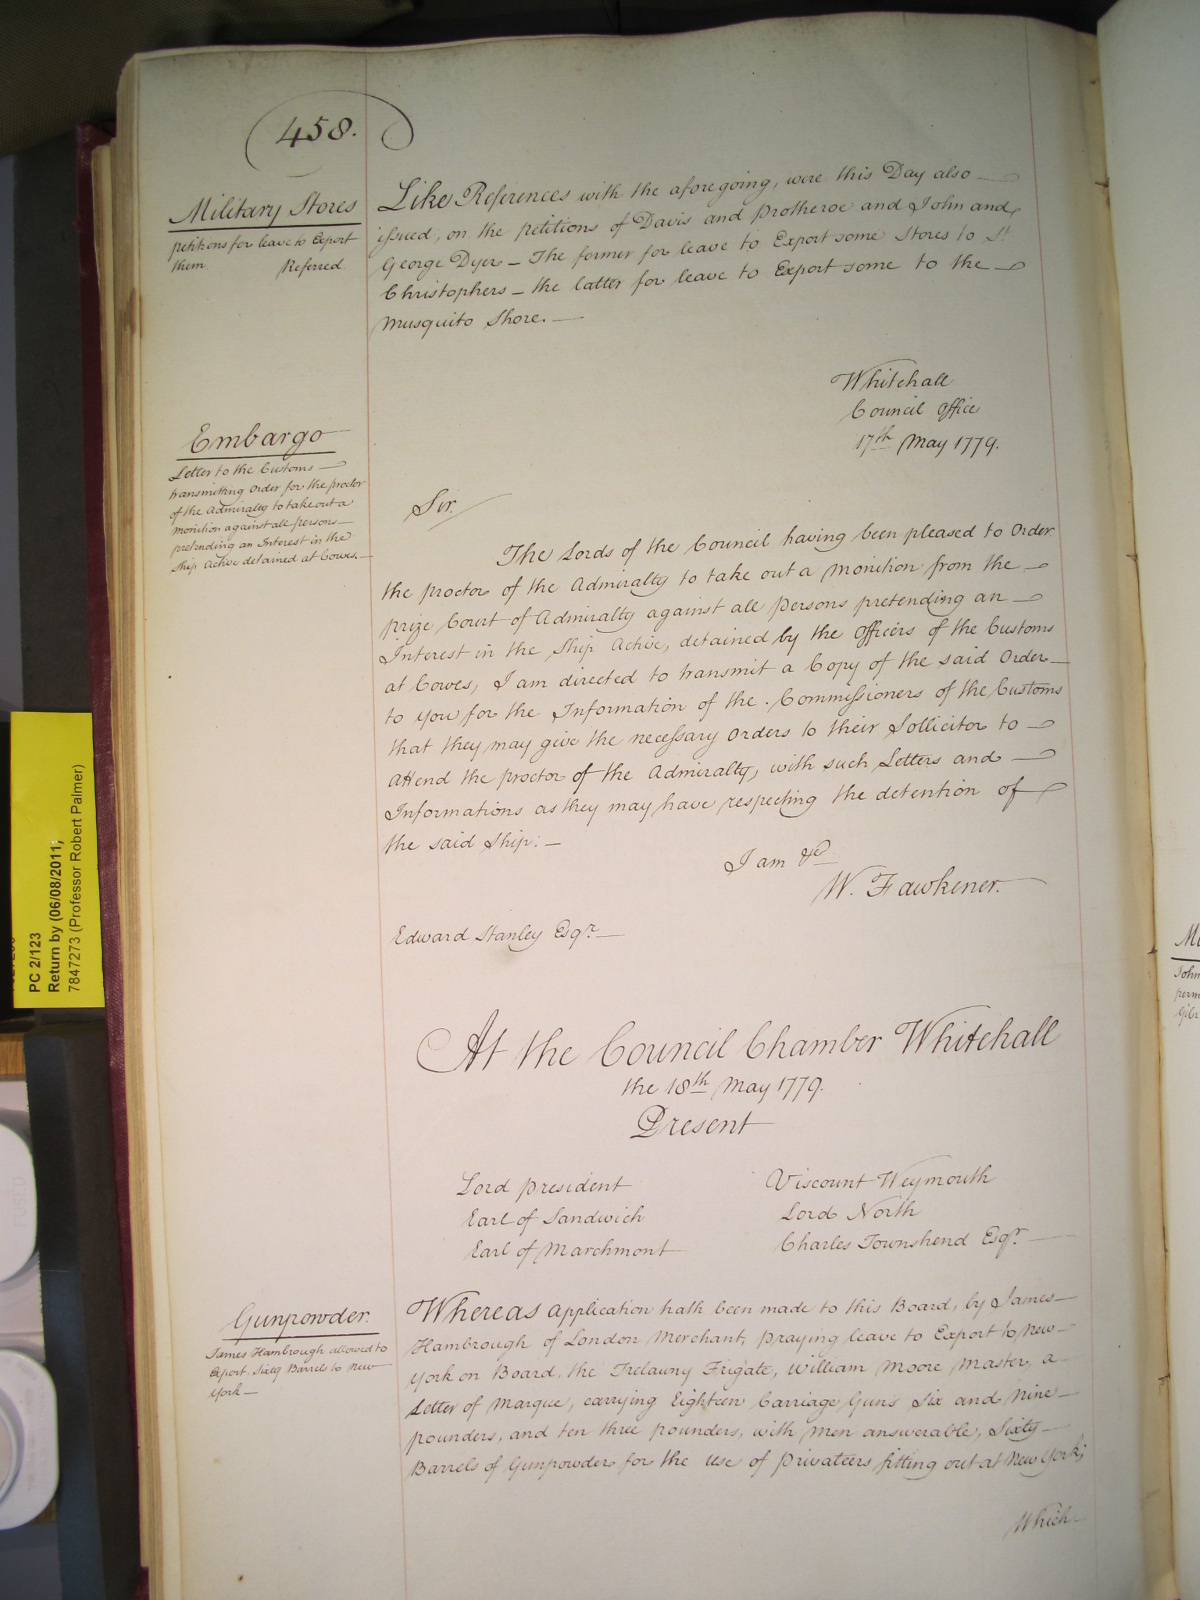 458.
Military Stores
petitions for leave to Export
them Referred
Like References with the aforegoing, were this Day also
issued, on the petitions of Davis and Protheroe and John and
George Dyer – The former for leave to Export some Stores to St
Christophers – the latter for leave to Export some to the
Musquito Shore. –
Whitehall
Council Office
17th May 1779.
Embargo
Letter to the Customs
transmitting Order for the proctor
of the Admiralty to take out a
monition against all persons
pretending an Interest in the
Ship Active detained at Cowes.
Sir.
The Lords of the Council having been pleased to Order
the proctor of the Admiralty to take out a monition from the
prize Court of Admiralty against all Persons pretending an
Interest in the Ship Active, detained by the Officers of the Customs
at Cowes, I am directed to transmit a Copy of the said Order
to you for the Information of the Commissioners of the Customs
that they may give the necessary Orders to their Sollicitor to
attend the proctor of the Admiralty, with such Letters and
Informations as they may have respecting the detention of
the said Ship: –
I am &c
W. Fawkener.
Edward Stanley Esqr.
At the Council Chamber Whitehall
the 18th May 1779.
Present
Lord president Viscount Weymouth
Earl of Sandwich Lord North
Earl of Marchmont Charles Townshend Esqr.
Gunpowder.
James Hambrough allowed to
Export Sixty Barrels to New
York –
Whereas application hath been made to this Board, by James
Hambrough of London Merchant, praying leave to Export to New
York on Board, the Trelauny Frigate, William Moore Master, a
Letter of Marque, carrying Eighteen Carriage Guns Six and Nine
pounders, and ten three pounders, with men answerable, Sixty
Barrels of Gunpowder for the use of Privateers fitting out at New York;
Which
PC 2/123
Return by (06/08/2011;
7847273 (Professor Robert Palmer)